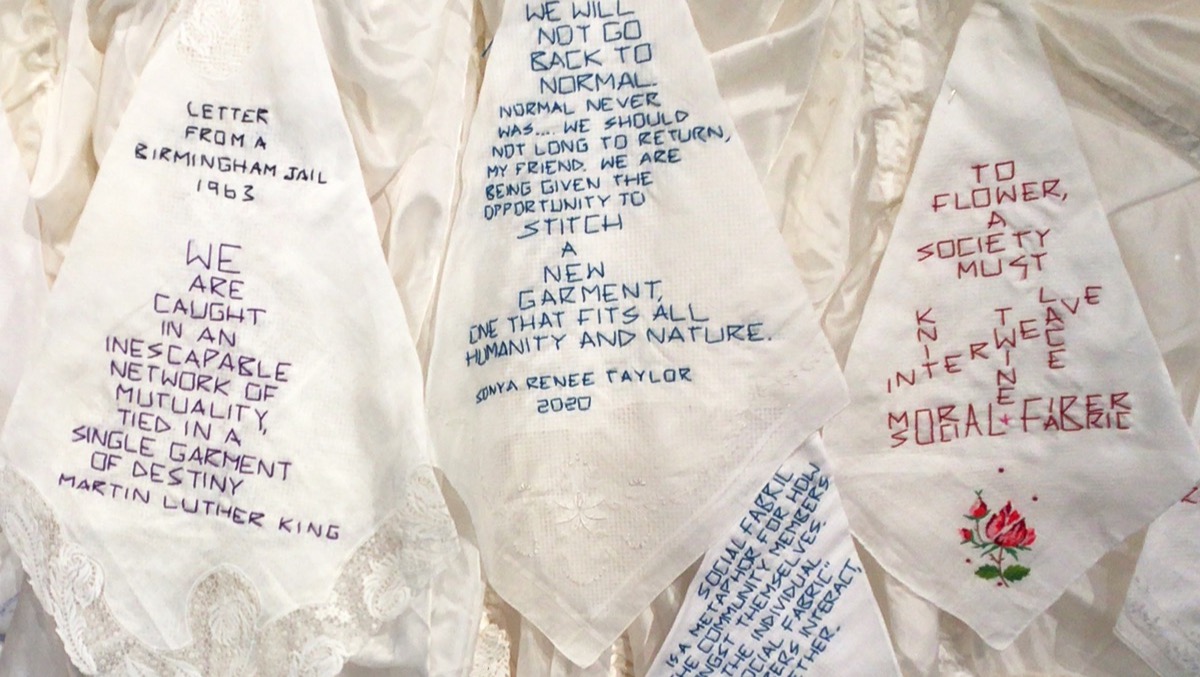 LETTER
FROM A
BIRMINGHAM JAIL
1963
WE
ARE
CAUGHT
IN AN
INESCAPABLE
NETWORK OF
MUTUALITY,
TIED IN A
SINGLE GARMENT
OF DESTINY
MARTIN LUTHER KING
WE WILL
NOT GO
BACK TO
NORMAL.
NORMAL NEVER
WAS.... WE SHOULD
NOT LONG TO RETURN,
MY FRIEND. WE ARE
BEING GIVEN THE
OPPORTUNITY TO
STITCH
A
NEW
GARMENT,
ONE THAT FITS ALL
HUMANITY AND NATURE.
SONYA RENEE TAYLOR
2020
SOCIAL FABRIC
IS A METAPHOR FOR HOW
COMMUNITY MEMBERS
THEMSELVES.
THE INDIVIDUAL
FABRIC."
INTERACT,
TO
FLOWER,
A
SOCIETY
MUST
KNIT
INTERWEAVE
TWINE
LACE
MORAL FIBER
SOCIAL FABRIC